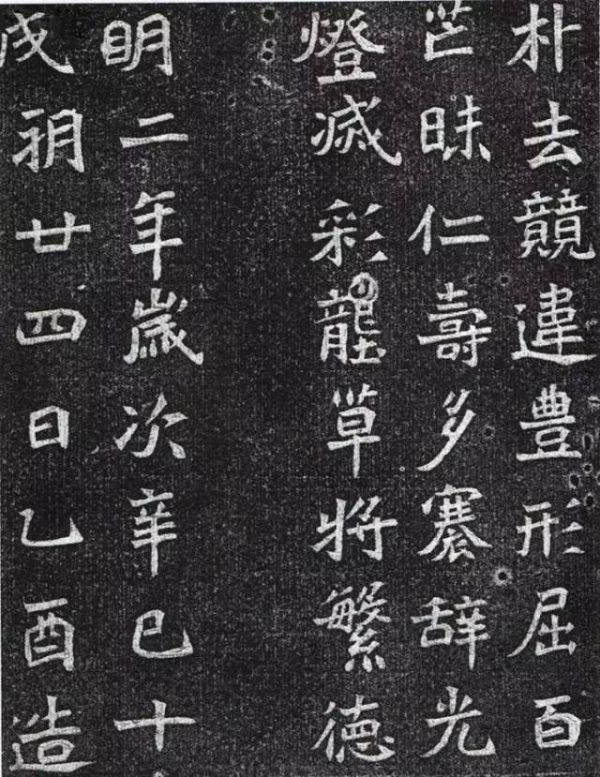 朴去競違豊形屈百
芒昧仁壽多褰辞光
燈滅彩壟草将繁徳
明二年歲次辛巳十
戌朔廿四日乙酉造